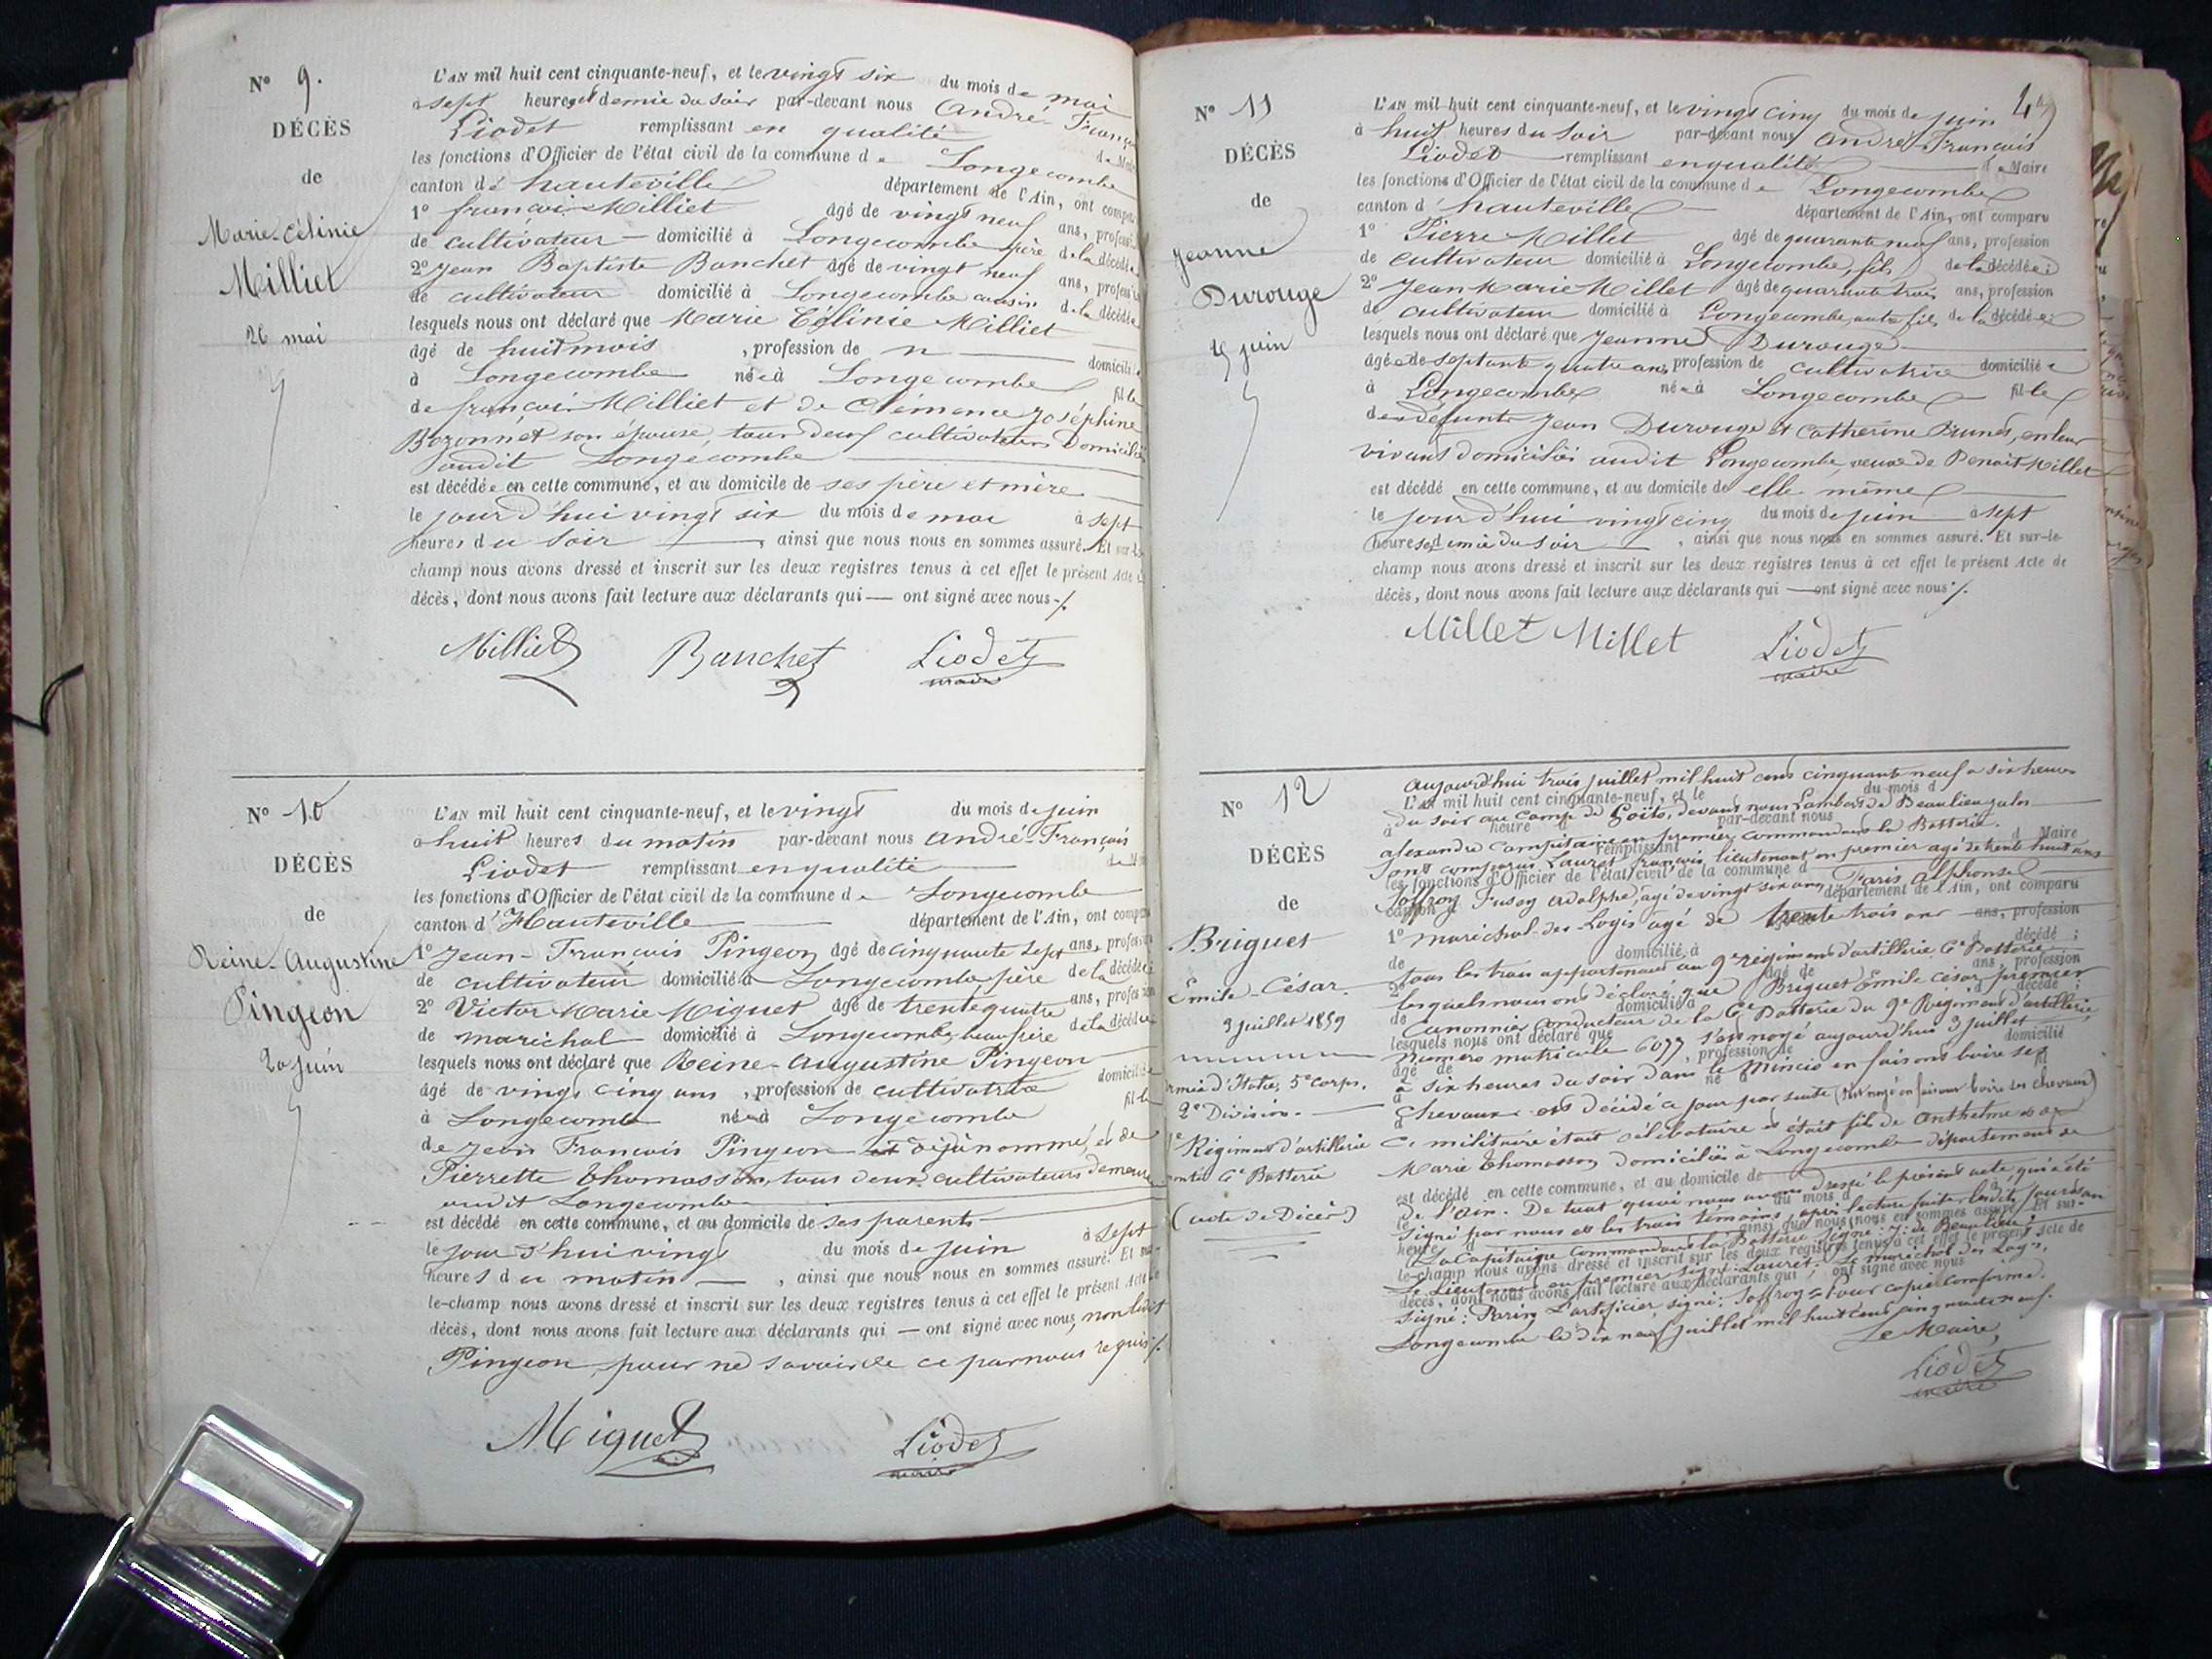 N° 9.
DÉCÈS
de
Marie-Célinie
Milliet
26 mai
L'AN mil huit cent cinquante-neuf, et le vingt six du mois de mai
à sept heures et demie du soir par-devant nous André-François
Liodet remplissant en qualité de Maire
les fonctions d'Officier de l'état civil de la commune de Longecombe
canton de hauteville département de l'Ain, ont comparu
1° françois Milliet âgé de vingt neuf ans, profession
de cultivateur domicilié à Longecombe père de la décédée
2° Jean Baptiste Banchet âgé de vingt neuf ans, profession
de cultivateur domicilié à Longecombe cousin de la décédée
lesquels nous ont déclaré que Marie Célinie Milliet
âgé de huit mois, profession de n domiciliée
à Longecombe née à Longecombe fille
de françois Milliet et de Clémence Joséphine
Bozonnet son épouse, tous deux cultivateurs domiciliés
audit Longecombe
est décédée en cette commune, et au domicile de ses père et mère
le jour d'hui vingt six du mois de mai à sept
heures du soir, ainsi que nous nous en sommes assuré. Et sur-le-
champ nous avons dressé et inscrit sur les deux registres tenus à cet effet le présent Acte de
décès, dont nous avons fait lecture aux déclarants qui — ont signé avec nous ./.
Milliet Banchet Liodet
maire
N° 10
DÉCÈS
de
Reine-Augustine
Pingeon
20 juin
L'AN mil huit cent cinquante-neuf, et le vingt du mois de juin
à huit heures du matin par-devant nous André-François
Liodet remplissant en qualité de Maire
les fonctions d'Officier de l'état civil de la commune de Longecombe
canton d'Hauteville département de l'Ain, ont comparu
1° Jean-François Pingeon âgé de cinquante sept ans, profession
de cultivateur domicilié à Longecombe père de la décédée
2° Victor Marie Miguet âgé de trente quatre ans, profession
de maréchal domicilié à Longecombe, beau frère de la décédée
lesquels nous ont déclaré que Reine-Augustine Pingeon
âgé de vingt cinq ans, profession de cultivatrice domiciliée
à Longecombe née à Longecombe fille
de Jean François Pingeon déjà nommé, et de
Pierrette Thomasson, tous deux cultivateurs demeurant
audit Longecombe
est décédé en cette commune, et au domicile de ses parents
le jour d'hui vingt du mois de juin à sept
heures du matin —, ainsi que nous nous en sommes assuré. Et sur-
le-champ nous avons dressé et inscrit sur les deux registres tenus à cet effet le présent Acte de
décès, dont nous avons fait lecture aux déclarants qui — ont signé avec nous, non ledit
Pingeon pour ne savoir de ce par nous requis ./.
Miguet Liodet
maire
N° 11
DÉCÈS
de
Jeanne
Durouge
25 juin
L'AN mil huit cent cinquante-neuf, et le vingt cinq du mois de juin
à huit heures du soir par-devant nous André-François
Liodet remplissant en qualité de Maire
les fonctions d'Officier de l'état civil de la commune de Longecombe
canton d'hauteville département de l'Ain, ont comparu
1° Pierre Millet âgé de quarante neuf ans, profession
de cultivateur domicilié à Longecombe, fils de la décédée;
2° Jean Marie Millet âgé de quarante trois ans, profession
de cultivateur domicilié à Longecombe, autre fils de la décédée;
lesquels nous ont déclaré que Jeanne Durouge
âgée de septante quatre ans, profession de cultivatrice domiciliée
à Longecombe née à Longecombe fille
de défunts Jean Durouge et Catherine Brunet, en leur
vivant domiciliés audit Longecombe, veuve de Benoit Millet
est décédé en cette commune, et au domicile de elle même
le jour d'hui vingt cinq du mois de juin à sept
heures et demie du soir, ainsi que nous nous en sommes assuré. Et sur-le-
champ nous avons dressé et inscrit sur les deux registres tenus à cet effet le présent Acte de
décès, dont nous avons fait lecture aux déclarants qui — ont signé avec nous ./.
Millet Millet Liodet
maire
N° 12
DÉCÈS
de
Briguet
Émile-César.
3 juillet 1859
armée d'Italie, 5e Corps.
2e Division.
Régiment d'artillerie
montée 6e Batterie
(acte de Décès)
Aujourd'hui trois juillet mil huit cent cinquante neuf à six heures
du soir au camp de Goïto, devant nous Lambert de Beaulieu
alexandre Capitaine en premier, commandant la Batterie.
Sont comparus Lauret françois, lieutenant en premier âgé de trente huit ans
Joffroy Adolphe, âgé de vingt six ans, Paris Alphonse
maréchal-des-Logis âgé de trente trois ans
tous les trois appartenant au 9e régiment d'artillerie 6e Batterie
lesquels nous ont déclaré que Briguet Émile César premier
Canonnier Conducteur de la 6e Batterie du 9e Régiment d'artillerie,
numéro matricule 6077 s'est noyé aujourd'hui 3 juillet
à six heures du soir dans le Mincio en faisant boire ses
Chevaux est décédé ce jour par suite (s'est noyé en faisant boire ses chevaux)
Ce militaire était célibataire et était fils de Anthelme et de
Marie Thomasson domiciliés à Longecombe département de
l'Ain. De tout quoi nous avons dressé le présent acte qui a été
signé par nous et les trois témoins, après lecture faite lesdits jour et an
Le Capitaine Commandant la Batterie signé: de Beaulieu.
Le Lieutenant en premier signé: Lauret. Le maréchal des Logis,
signé: Paris. L'artificier, signé: Joffroy = Pour copie conforme.
Longecombe le dix neuf juillet mil huit cent cinquante neuf.
Le Maire,
Liodet
maire